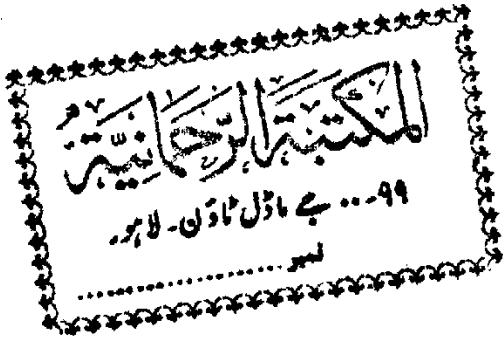 المکتبۃ الرحمانیۃ
۹۹۔۔۔ جے ماڈل ٹاؤن۔ لاہور
نمبر ........................